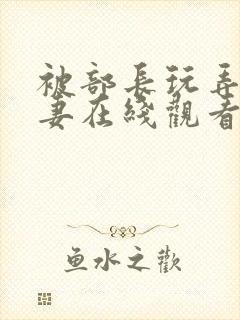 被部長玩弄
妻在綫觀看
鱼水之歡